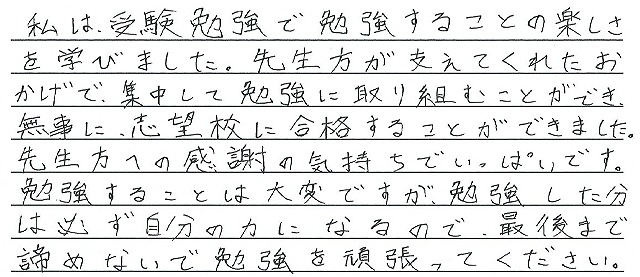 私は、受験勉強で勉強することの楽しさ
を学びました。先生方が支えてくれたお
かげで、集中して勉強に取り組むことができ、
無事に、志望校に合格することができました。
先生方への感謝の気持ちでいっぱいです。
勉強することは大変ですが、勉強した分
は必ず自分の力になるので、最後まで
諦めないで勉強を頑張ってください。